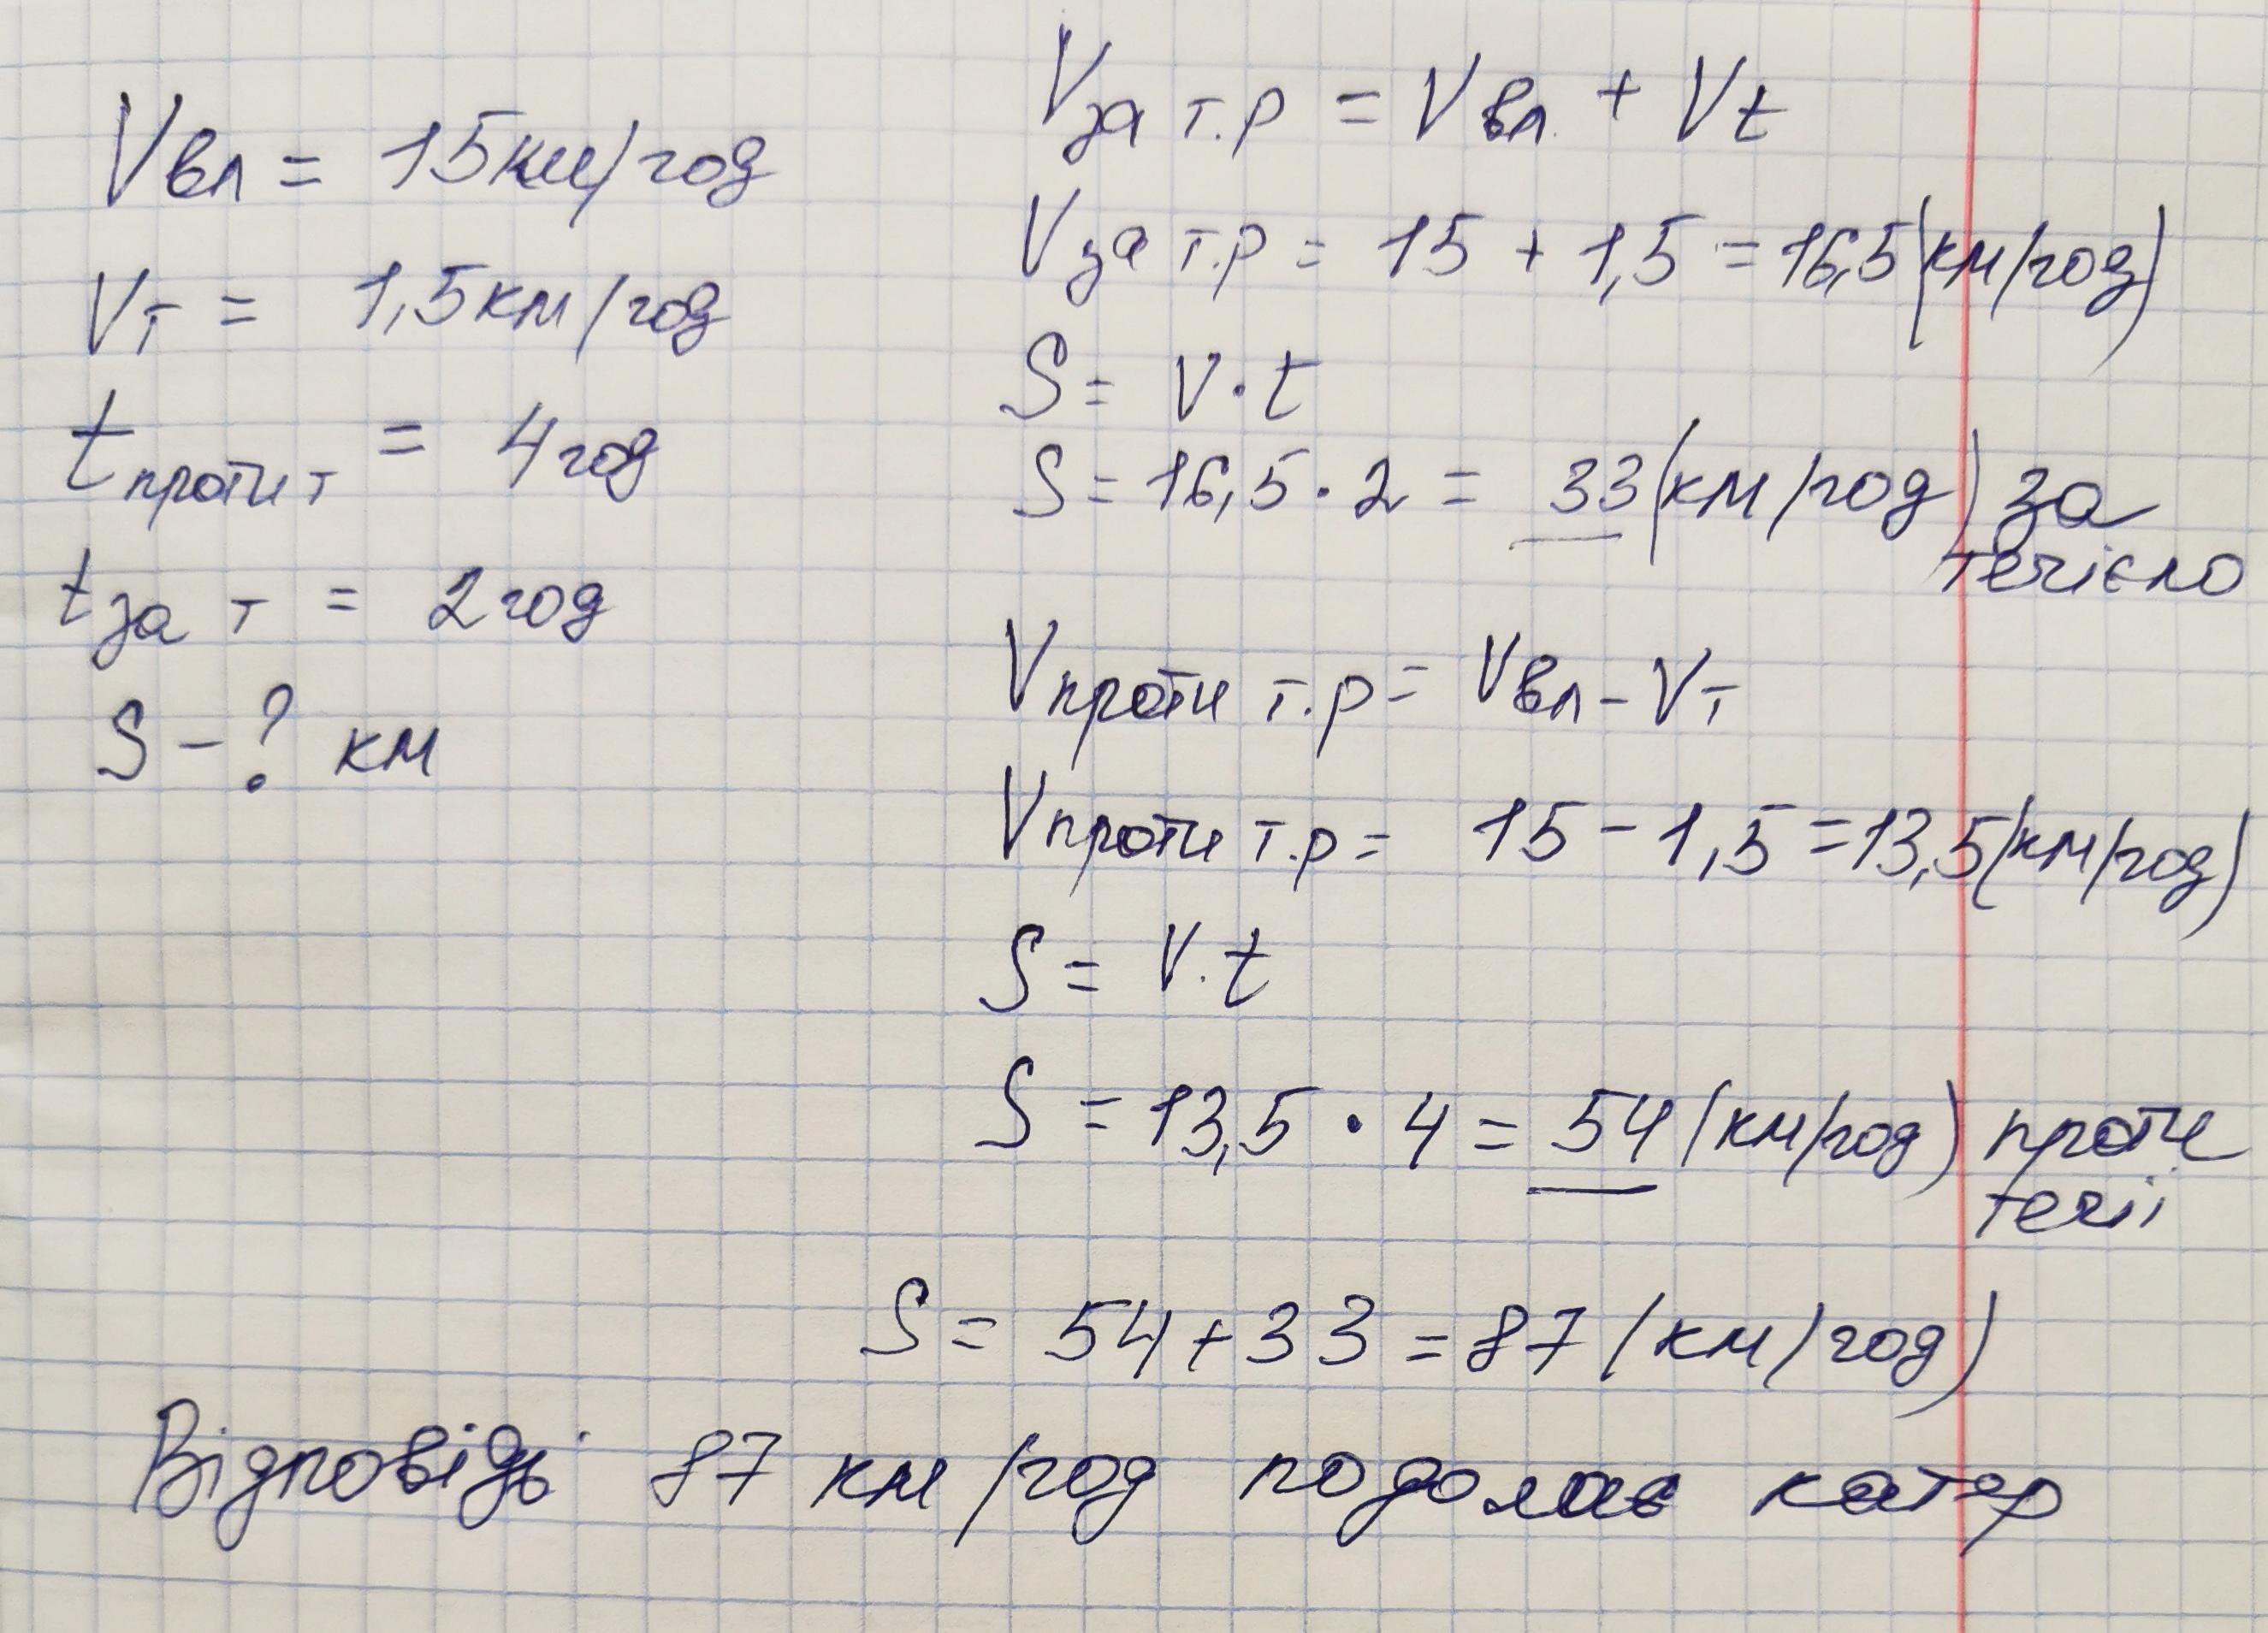 Vвл = 15км/год
Vт = 1,5км/год
tпроти т = 4год
tза т = 2год
S - ? км
Vза т.р = Vвл. + Vt
Vза т.р = 15 + 1,5 = 16,5(км/год)
S = V · t
S = 16,5 · 2 = 33(км/год) за
течією
Vпроти т.р = Vвл - Vт
Vпроти т.р = 15 - 1,5 = 13,5(км/год)
S = V · t
S = 13,5 · 4 = 54(км/год) проти
течії
S = 54 + 33 = 87(км/год)
Відповідь: 87 км/год подолав катер